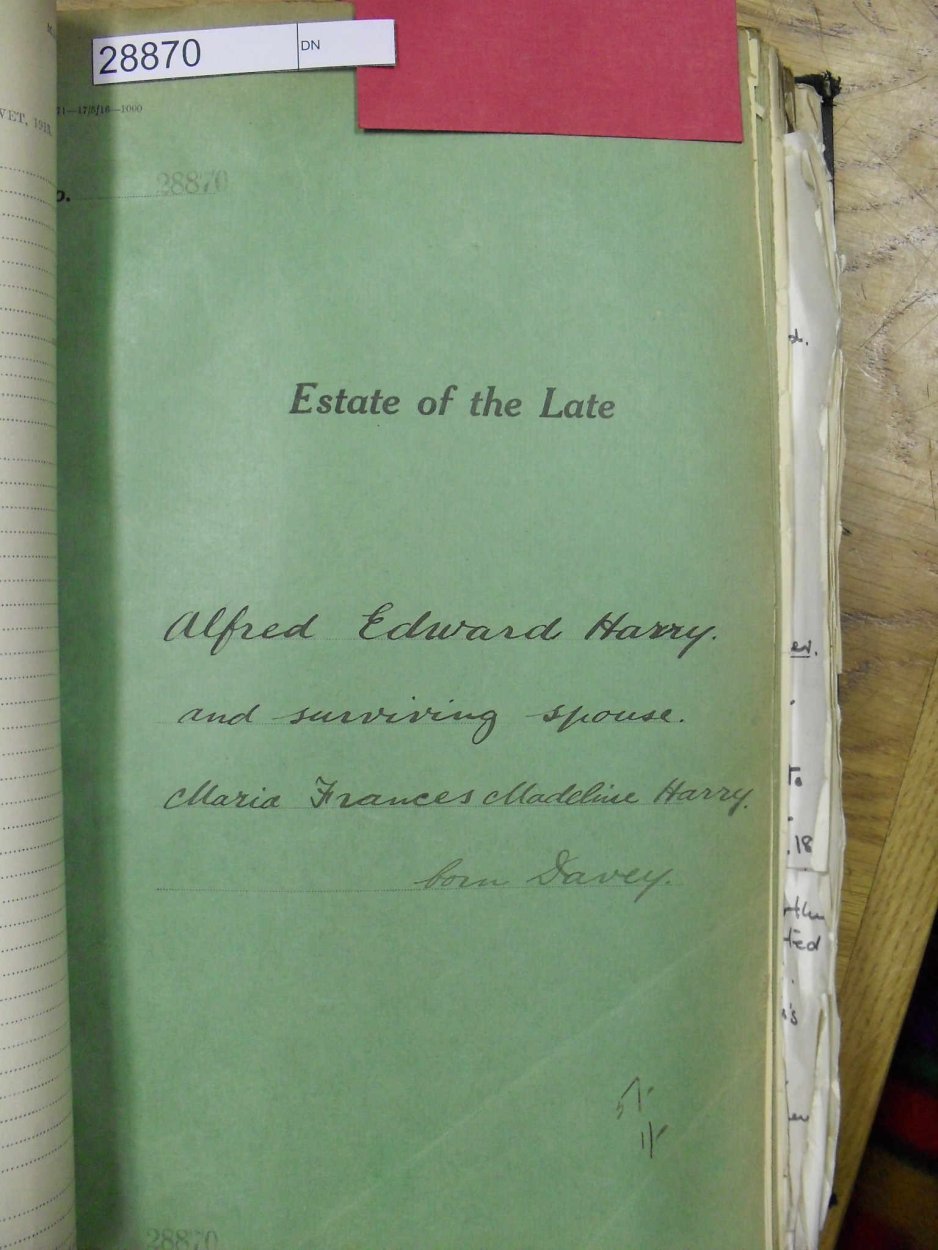 28870 DN
VET, 1913
71—17/5/16—1000
28870
Estate of the Late
Alfred Edward Harry.
and surviving spouse.
Maria Frances Madeline Harry.
born Davey.
28870
.18